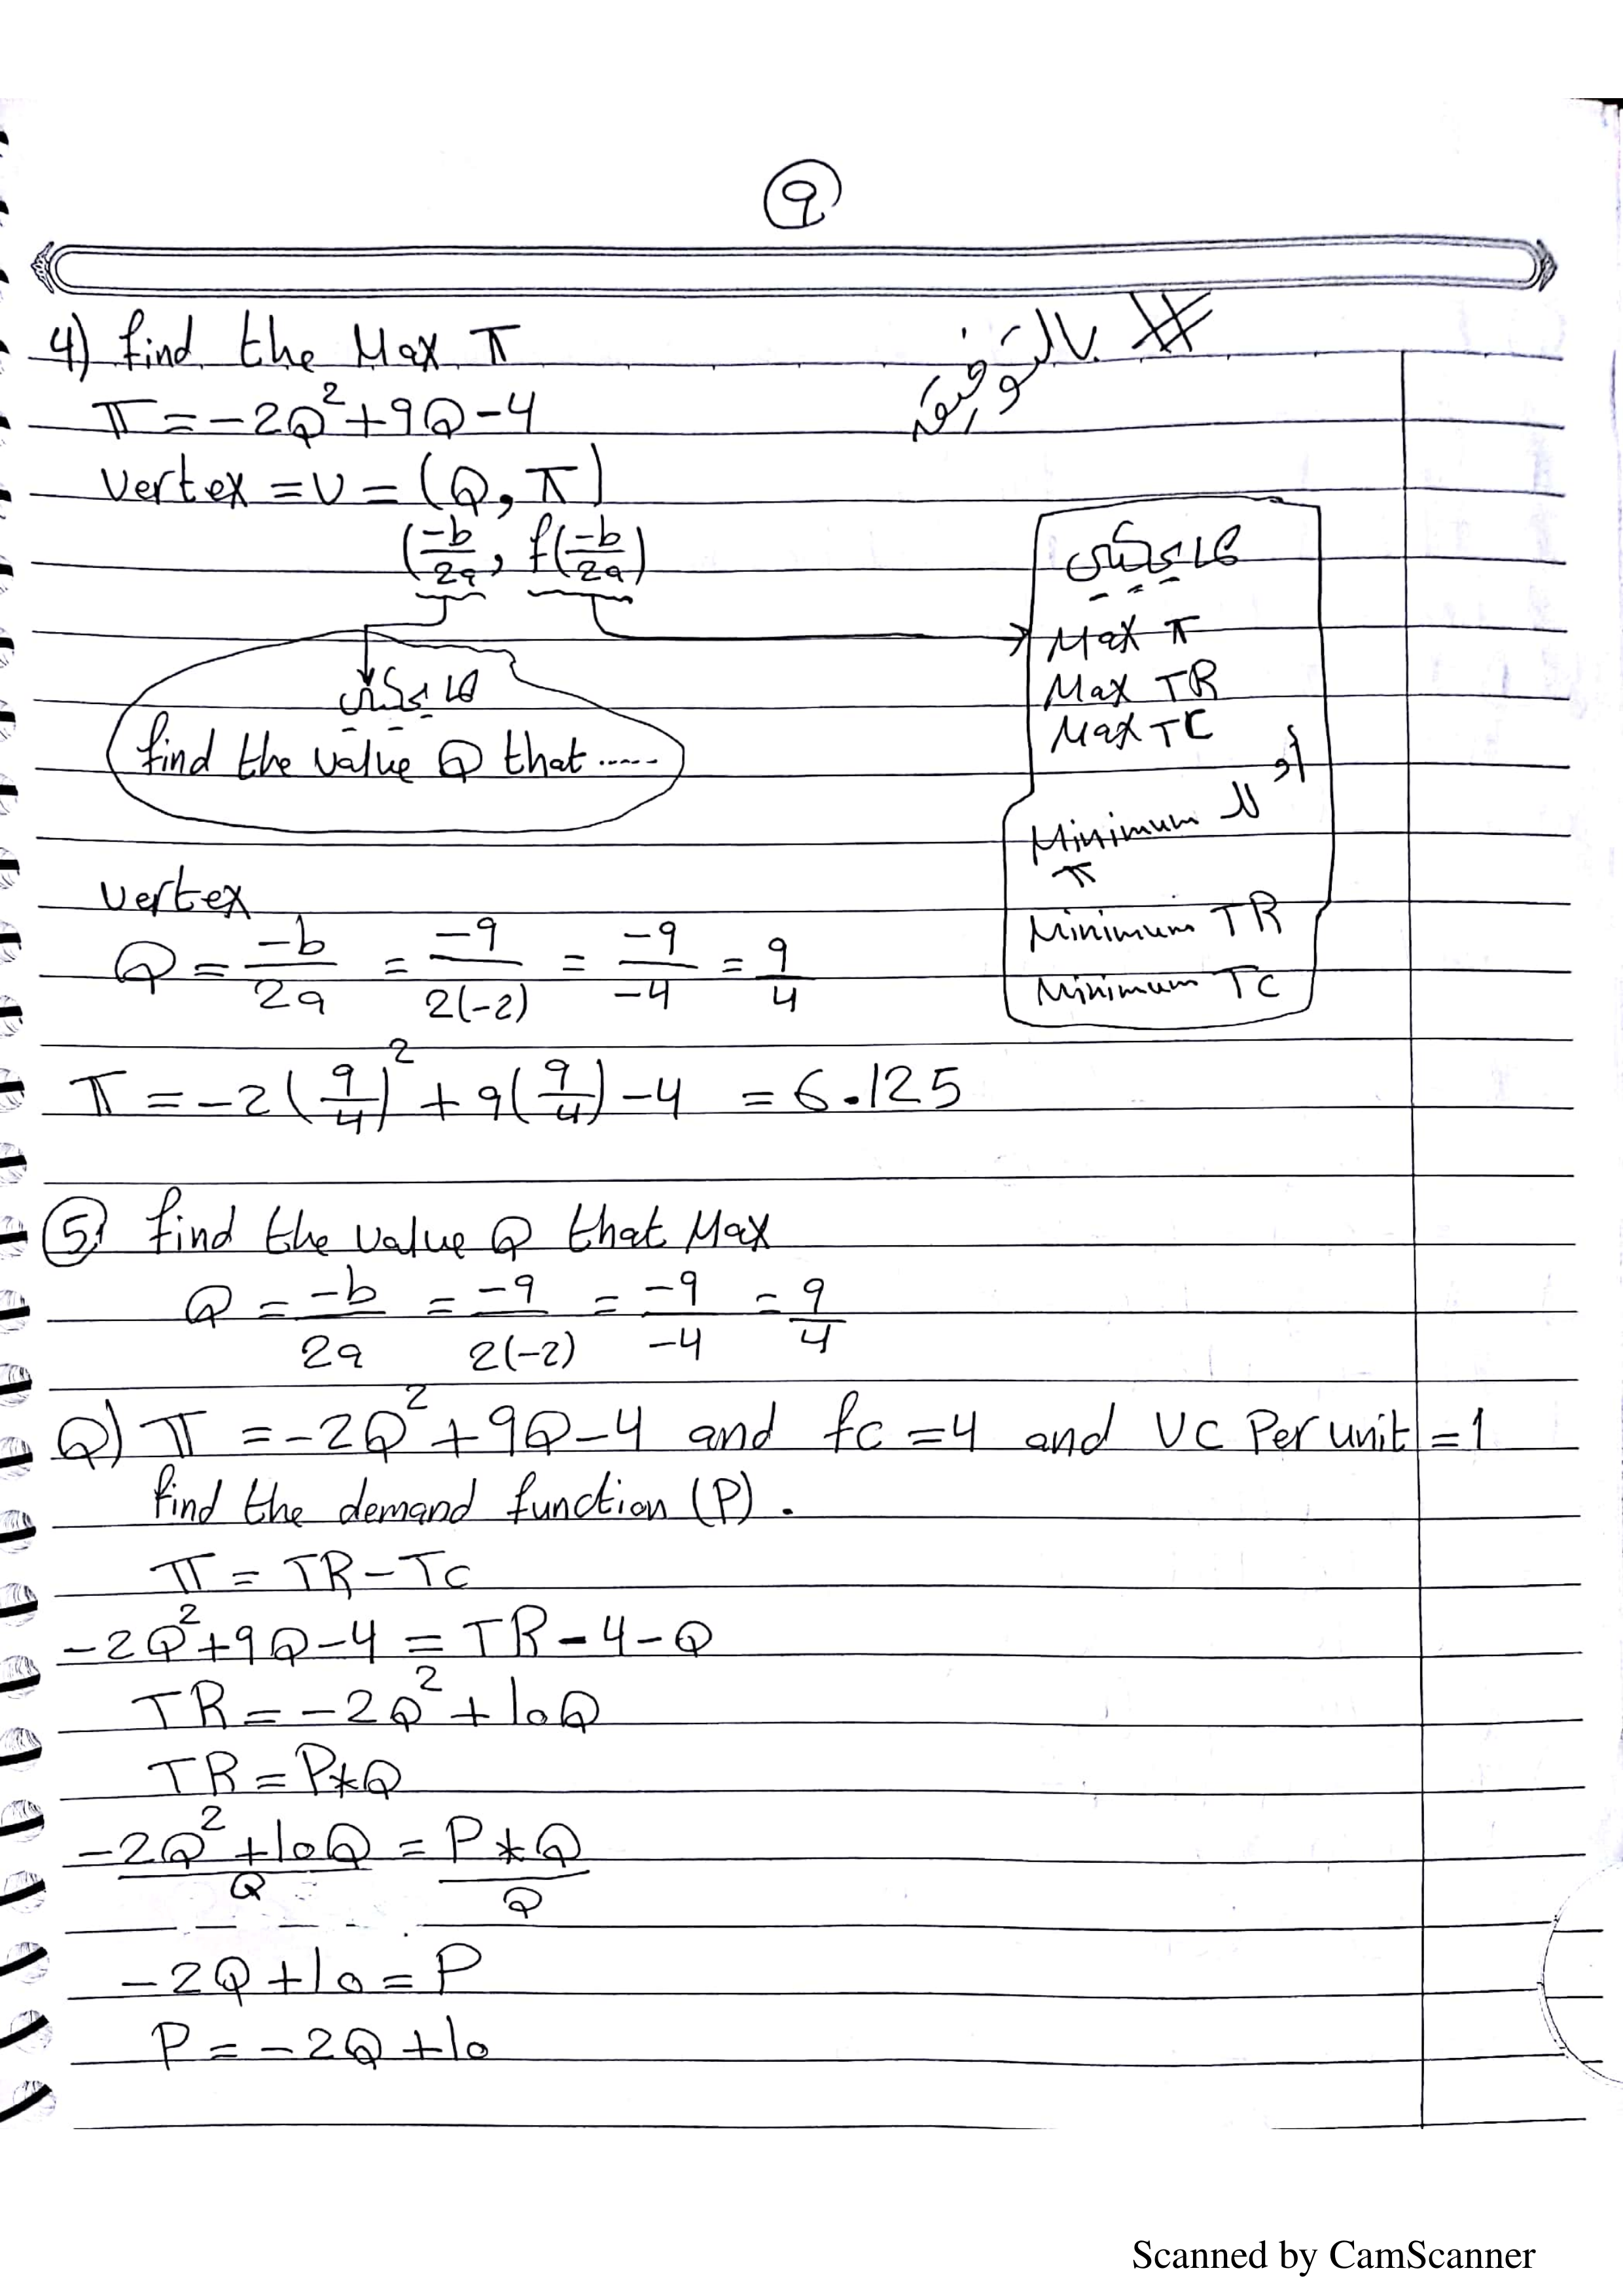 9
4) find the Max π
# بالتوفيق
π = -2Q² + 9Q - 4
Vertex = V = (Q, π)
(-b/2a, f(-b/2a))
لما يحكيلي
find the value Q that .....
لما يحكيلي
Max π
Max TR
Max TC
أو
Minimum لل
π
Minimum TR
Minimum TC
Vertex
Q = -b/2a = -9/2(-2) = -9/-4 = 9/4
π = -2(9/4)² + 9(9/4) - 4 = 6.125
5) find the value Q that Max
Q = -b/2a = -9/2(-2) = -9/-4 = 9/4
Q) π = -2Q² + 9Q - 4 and fc = 4 and VC Per unit = 1
find the demand function (P).
π = TR - TC
-2Q² + 9Q - 4 = TR - 4 - Q
TR = -2Q² + 10Q
TR = P*Q
-2Q² + 10Q/Q = P*Q/Q
-2Q + 10 = P
P = -2Q + 10
Scanned by CamScanner